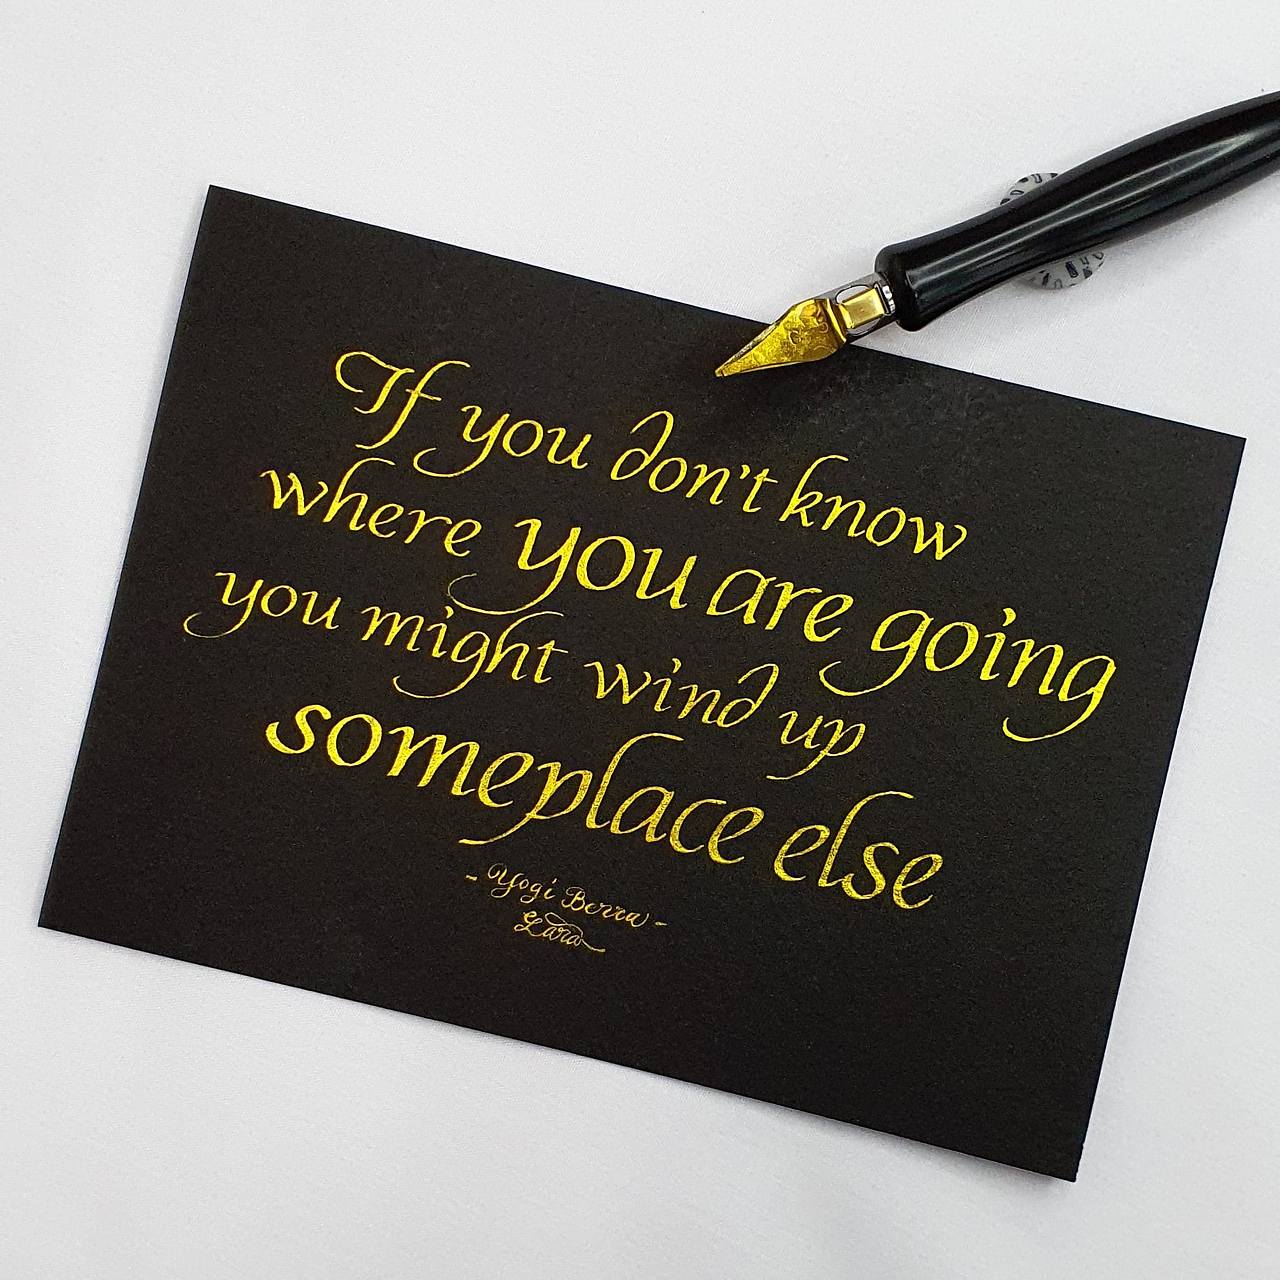 If you don't know
where you are going
you might wind up
someplace else
- Yogi Berra -
Lara